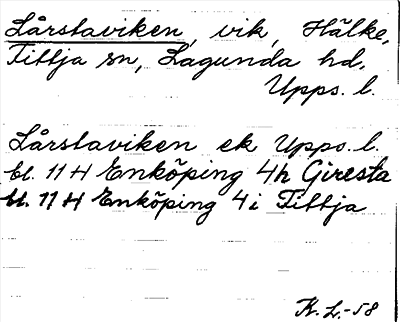 Lårstaviken, vik, Hälke,
Tillja sn, Lagunda hd,
Upps. l.
Lårstaviken ek Upps. l.
bl. 11 H Enköping 4h Giresta
bl. 11 H Enköping 4i Tillja
K. L.-58